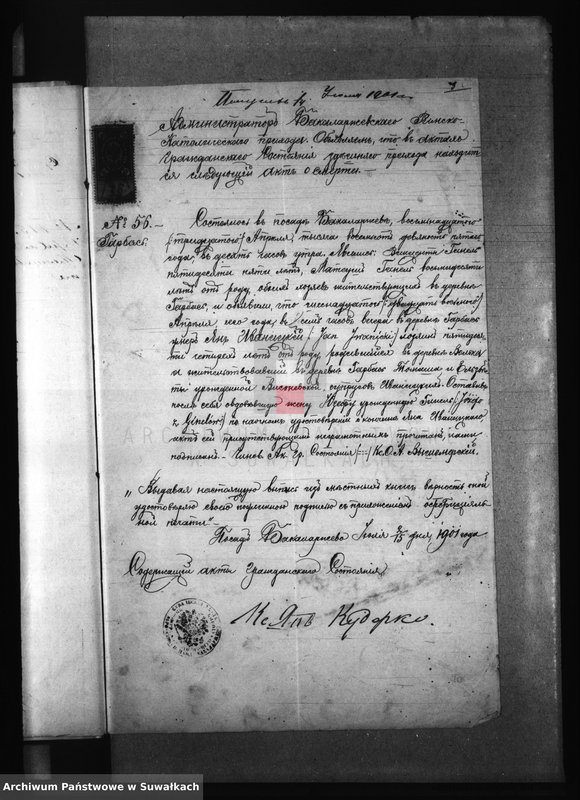 1901
3
Администраторъ Бакаларжевскаго Римско-
Католическаго прихода. Объявляемъ, что въ актахъ
Гражданскаго Состоянія здѣшняго прихода находит-
ся слѣдующій актъ о смерти.
№ 56.
Гарбасъ
Состоялось въ посадѣ Бакаларжевѣ, восемнадцатого
(тридцатого) Апрѣля, тысяча восемьсотъ девяносто пятаго
года, въ десять часовъ утра. Явились: Викентій Гинель
пятидесяти пяти лѣтъ, Матеушъ Гинель восемидесяти
лѣтъ отъ роду, обоихъ жительствующіе въ деревнѣ
Гарбасъ, и объявили, что шестнадцатого (двадцать восьмого)
Апрѣля, сего года, въ семь часовъ вечера въ деревнѣ Гарбасъ
умеръ Янъ Иваницкій (Jan Iwanicki) пятидеся-
ти четырехъ лѣтъ отъ роду, родившійся въ деревнѣ
и жительствовавшій въ деревнѣ Гарбасъ Томаша и Эльзбе-
ты урожденной супруговъ Иваницкихъ. Оставивъ
послѣ себя овдовѣвшую жену Юзефу урожденную Гинель (Józefę
z Ginelów) по настоящемъ удостовѣреніи о кончинѣ Яна Иваницкаго,
актъ сей присутствующимъ неграмотнымъ прочитанъ, Нами
подписанъ. Чинов. Ак. Гр. Состоянія К. О. А.
„Выдавая настоящую выпись изъ мѣстныхъ книгъ вѣрность оной
удостовѣряю своею подписью съ приложеніемъ оффиціаль-
ной печати"
Посадъ Бакаларжево Іюля 2/15 дня 1901 года
Содержащій акты Гражданскаго Состоянія
Кс. Янъ Кудерко
ARCHIWUM
SUWAŁKACH
Archiwum Państwowe w Suwałkach